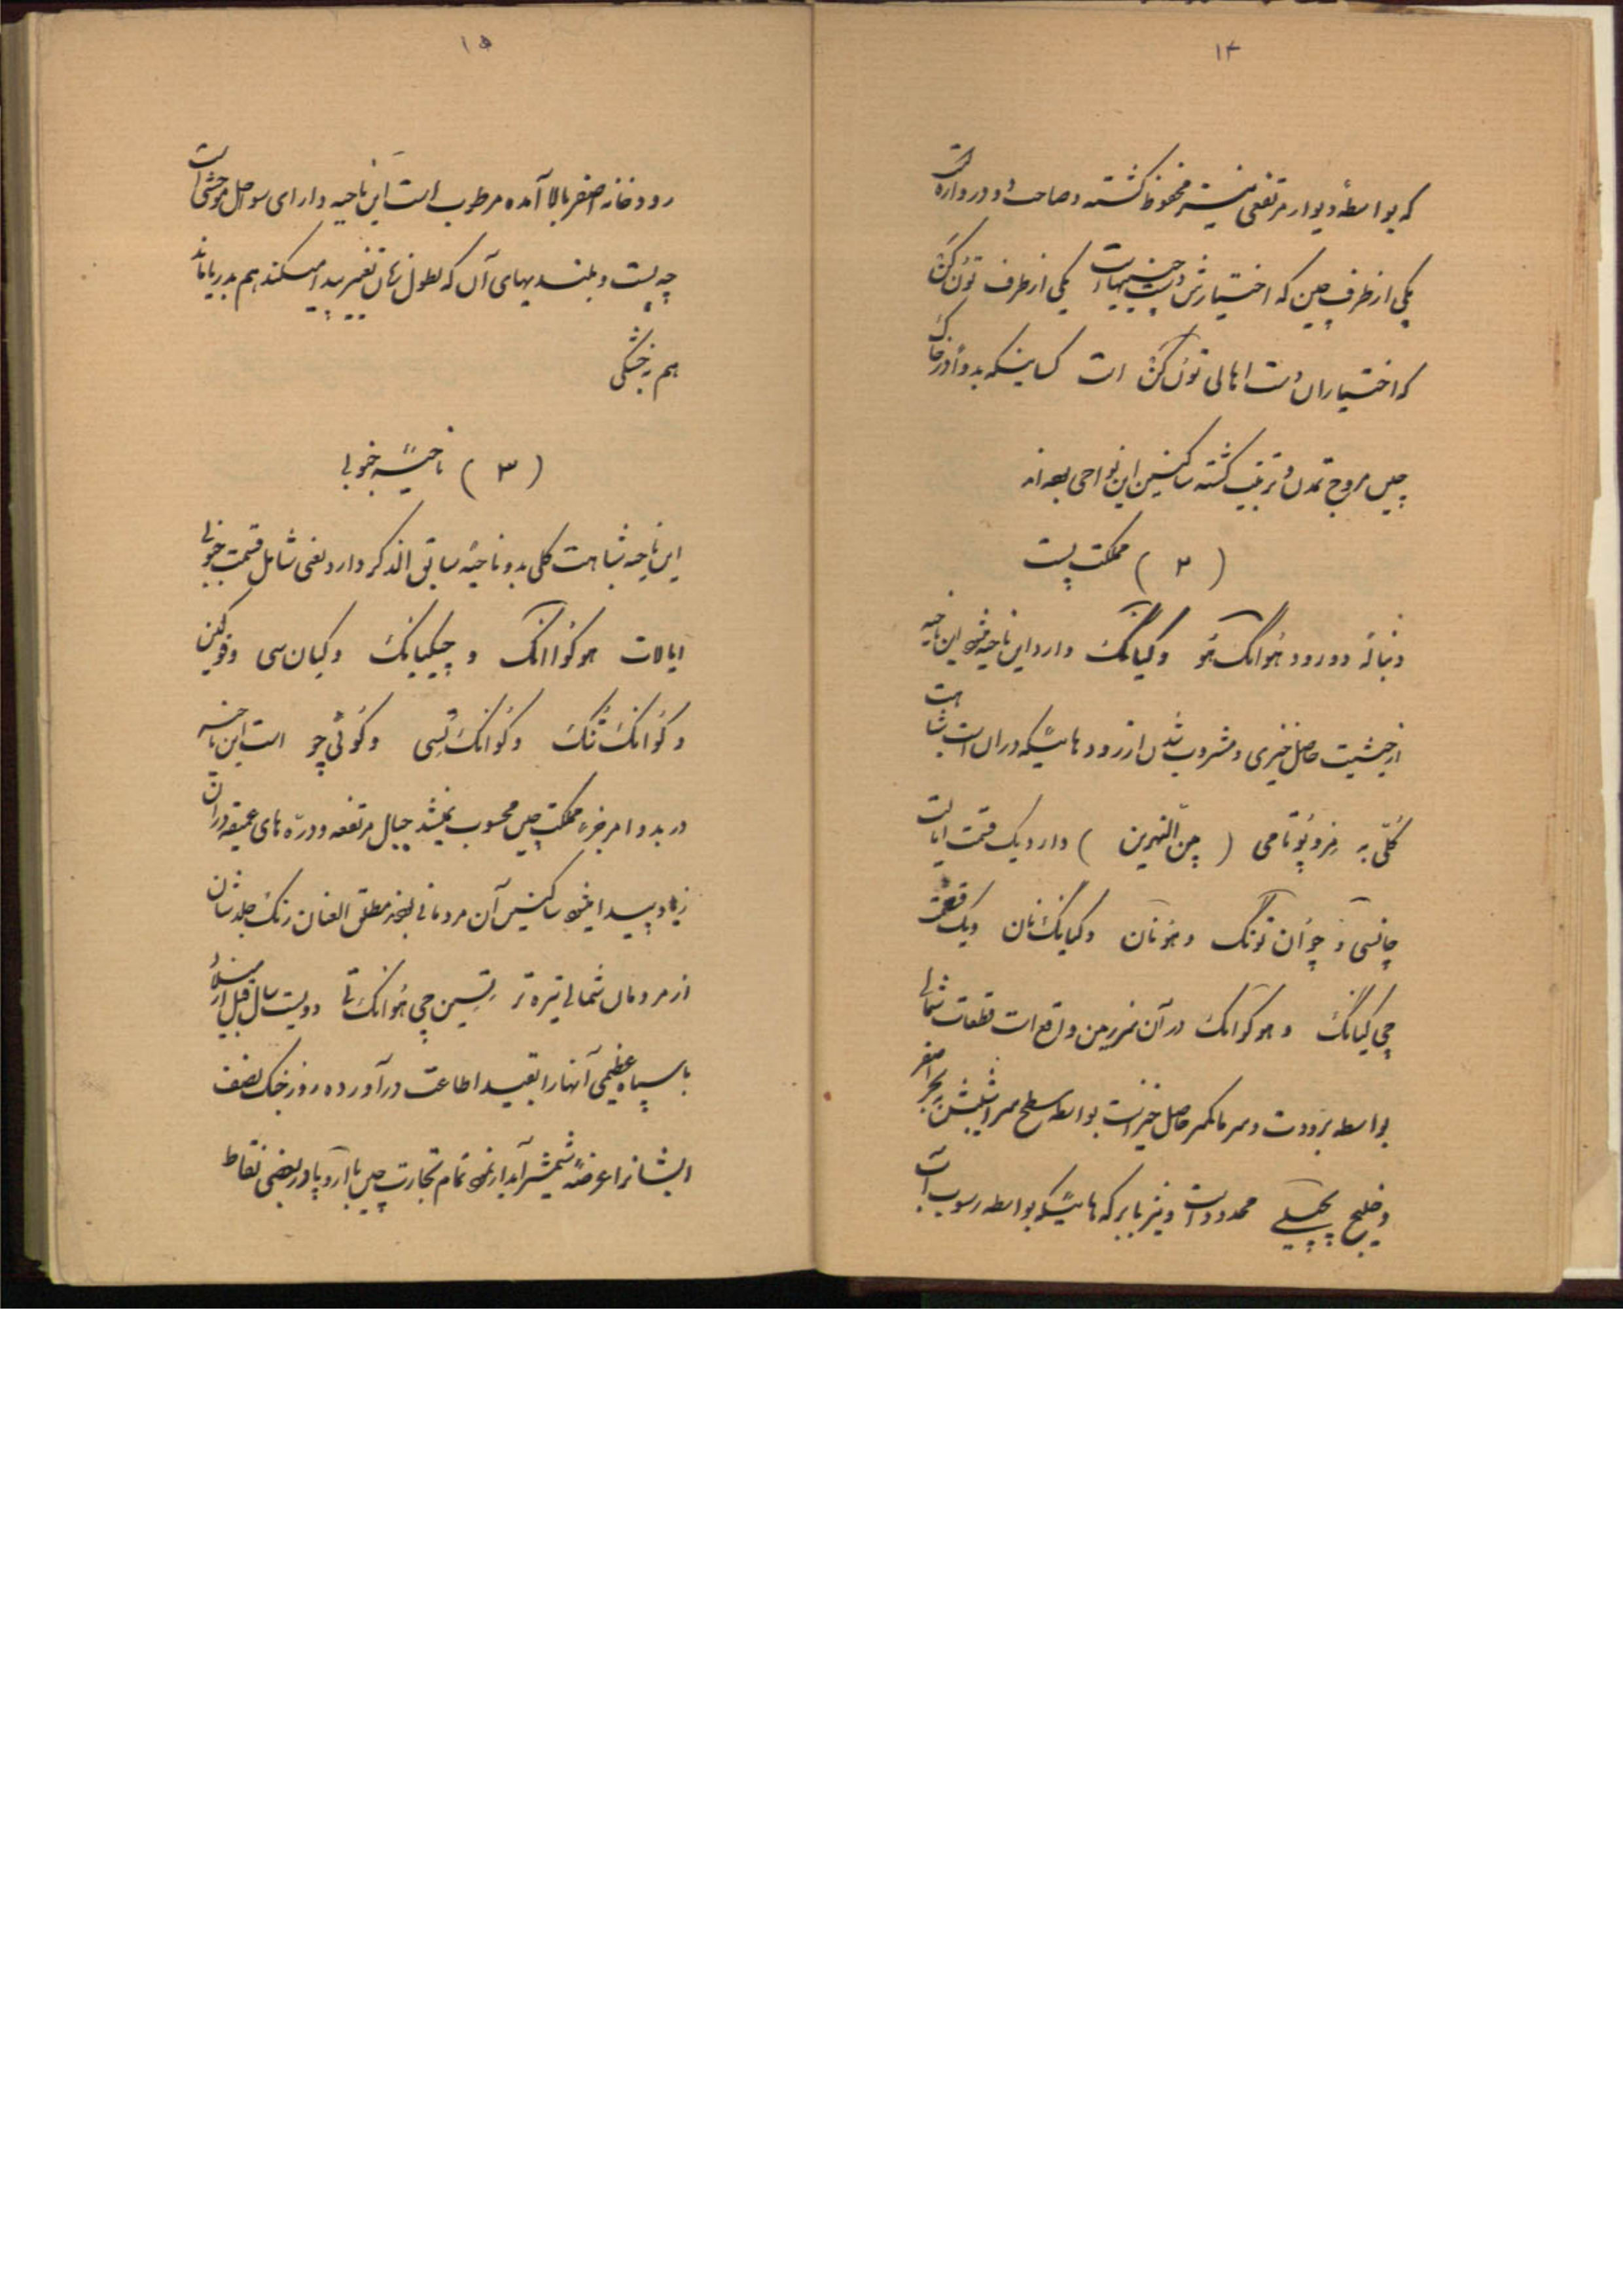 ۱۴
که بواسطهٔ دیوار مرتفعی نیز محفوظ گشته و صاحب دو دروازه است
یکی از طرف چین که اختیارش دست چینیهاست یکی از طرف تون کن
که اختیاران دست اهالی تون کن است کسانیکه بدواً در خاک
چین مروج تمدن و تربیت گشته ساکنین این نواحی بوده‌اند
( ۲ ) مملکت پست
دنباله دو رود هُوانگ هُو وکیانگ دارد این ناحیه میشود این ناحیه
از حیثیت حاصل خیزی و مشروب شدن از رودهائیکه در ان است شباهت
کُلّی به مِزوپُوتامی ( بین النهرین ) دارد یک قسمت ایالت
چانسی و چوُان توُنک و هوُنان و کیانک نان و یک قسمت
چی کیانک و هوکوانک در آن سرزمین واقع است قطعات شمالی
بواسطه برودت و سرما کمتر حاصل خیز است بواسطه سطح سراشیبش ببحر اصفر
و خلیج پچیلی محدود است و نیز با برکه هائیکه بواسطه رسوب آب
۱۵
رودخانه اصفر بالا آمده مرطوب است این ناحیه دارای سواحل موحشی است
چه پست و بلندیهای آن که بطول زمان تغییر پیدا میکند هم بدریا ماند
هم بخشکی
( ۳ ) ناحیهٔ جنوبی
این ناحیه شباهت کلی بدو ناحیهٔ سابق الذکر دارد یعنی شامل قسمت جنوبی
ایالات هوکوُاانک و چیکیانک و کیان سی و فوکین
و کوُانک تُنک و کوُانک تسی و کوُئی چو است این ناحیه
در بدو امر جزء مملکت چین محسوب نمیشد جبال مرتفعه و درّه های عمیقه در ان
زیاد پیدا میشود ساکنین آن مردمانی بودند مطلق العنان رنک جلدشان
از مردمان شمالی تیره تر تسین چی هُوانک تی دویست سال قبل از میلاد
با سپاه عظیمی آنها را بقید اطاعت درآورده روز جنک نصف
ایشانرا عرضهٔ شمشیر آبدار نمود تمام تجارت چین با اروپا در بعضی نقاط